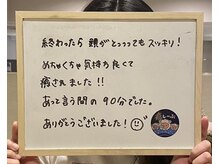 終わったら 頭がとっっってもスッキリ!
めちゃくちゃ気持ち良くて
癒されました!!
あって言う間の90分でした。
ありがとうございました!